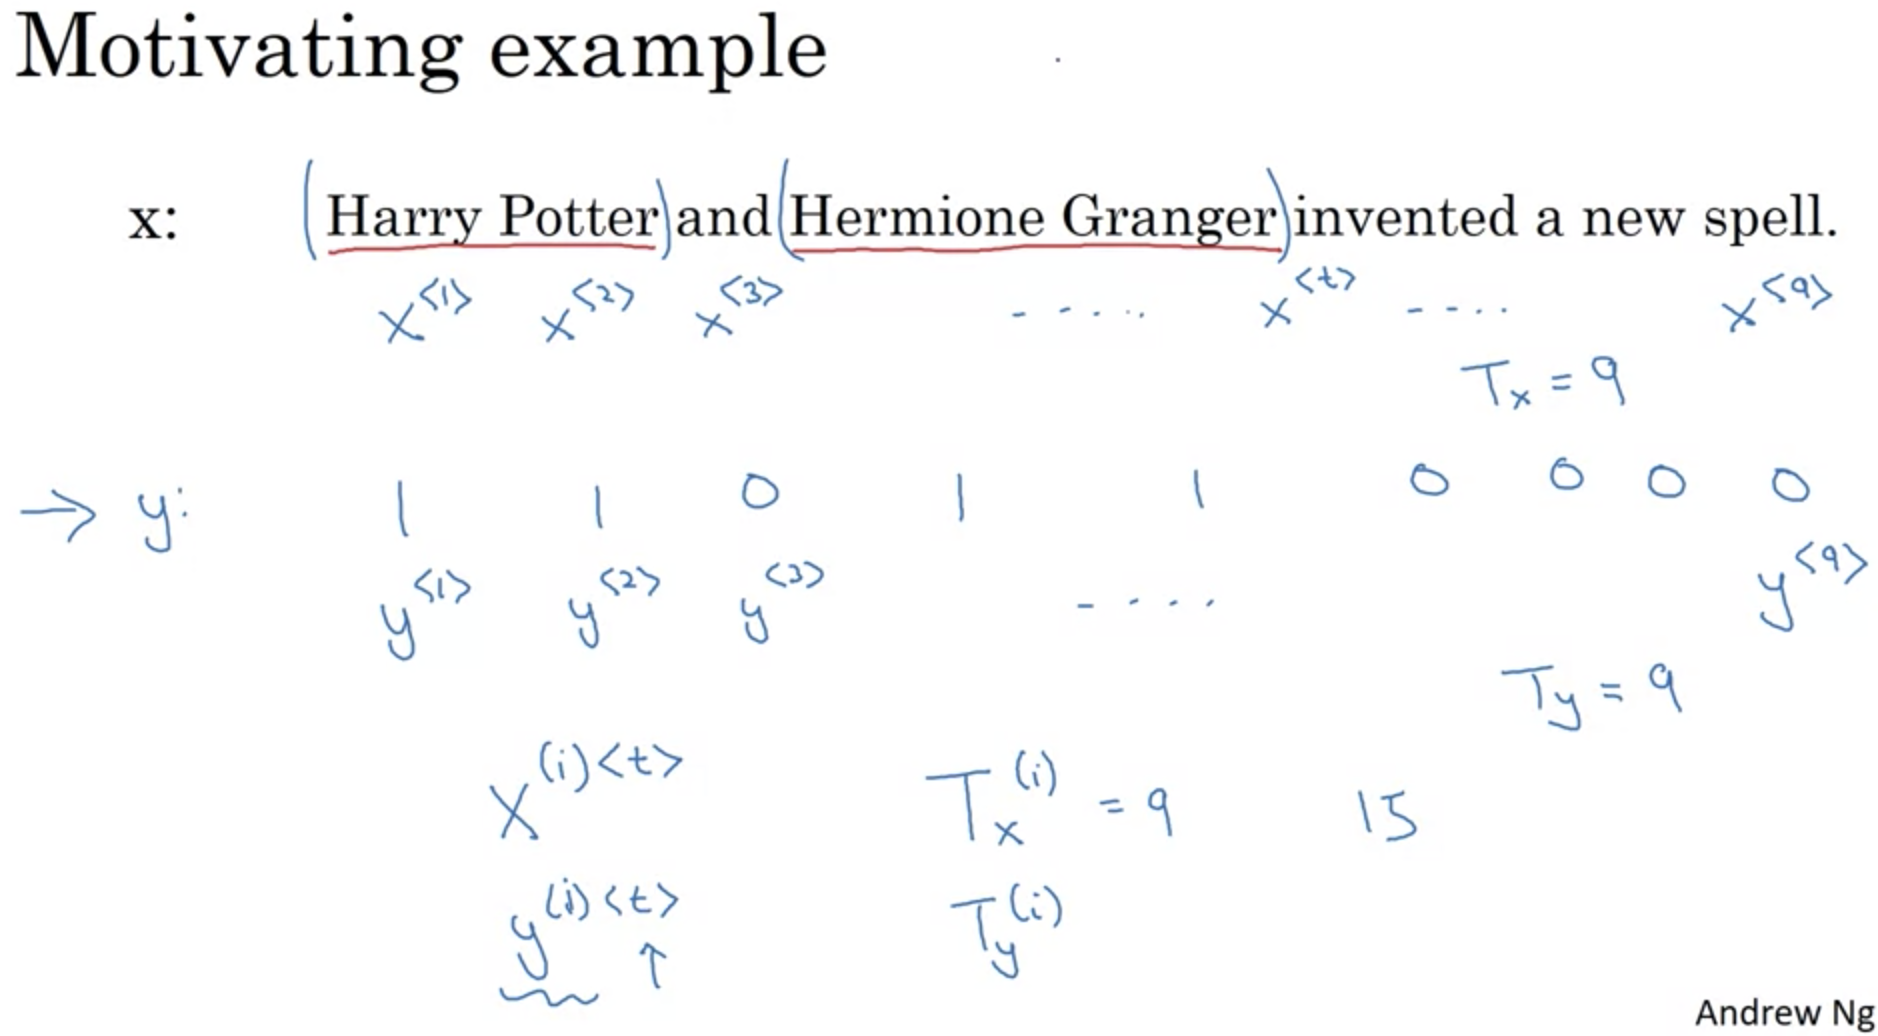 Motivating example
x: (Harry Potter) and (Hermione Granger) invented a new spell.
x<1> x<2> x<3> - .... x<t> - - .. x<9>
Tx = 9
→ y: 1 1 0 1 1 0 0 0 0
y<1> y<2> y<3> - ... y<9>
Ty = 9
X(i)<t> Tx(i) = 9 15
y(i)<t> Ty(i)
↑
Andrew Ng